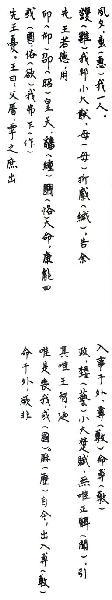 夙夕,叀(惠)我一人,
我邦小大猷,毋折緘,告余
先王若德,用
卬(仰)卲(昭)皇天,大命,康能四
或(國)俗(欲)我弗乍(作)
先王憂。王曰:父厝,雩之庶出
入事于外,尃(敷)命尃(敷)
政,埶(藝)小大楚賦,無唯正聞(昏),引
其唯王智,迺
唯是喪我或(國)。厤(歷)自今,出入尃(敷)
命于外,厥非